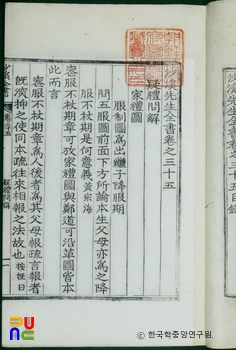 沙溪先生全書卷之三十五
疑禮問解
家禮圖
服制圖爲出繼子降服期
問五服圖前面下方所論本生父母亦爲之降
服不杖期是何意義 黃宗海
喪服不杖期章可攷家禮圖與鄭道可沿革圖皆本
此而言
喪服不杖期章爲人後者爲其父母報疏言報者
旣深抑之使同本疏往來相報之法故也
沙溪先生全書卷之三十五目錄
한국학중앙연구원